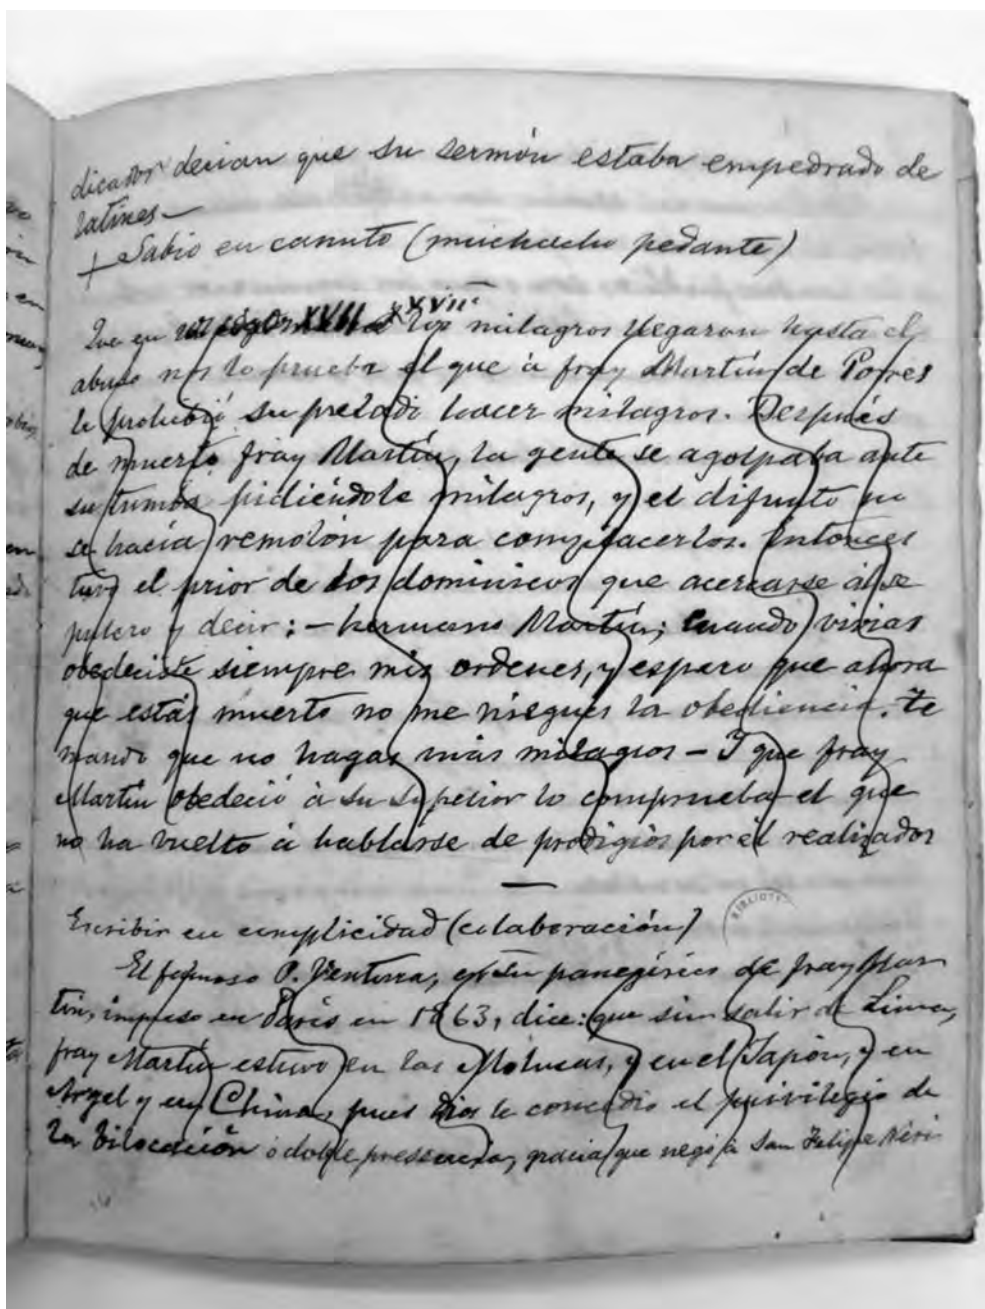 dicador decian que su sermón estaba empedrado de
latines—
+ Sabio en canuto (muchacho pedante)
Que en XVII XVII los milagros llegaron hasta el
abuso nos lo prueba el que á fray Martín de Porres
le prohibió su prelado hacer milagros. Después
de muerto fray Martín, la gente se agolpaba ante
su tumba pidiéndole milagros, y el difunto no
se hacía remolón para complacerlos. Entonces
tuvo el prior de los dominicos que acercarse al se
pulcro y decir: — hermano Martín; cuando vivías
obedeciste siempre mis ordenes, y espero que ahora
que estás muerto no me niegues la obediencia. Te
mando que no hagas más milagros — Y que fray
Martín obedeció á su superior lo comprueba el que
no ha vuelto á hablarse de prodigios por él realizados
—
Escribir en complicidad (colaboración)
El famoso P. Ventura, en su panegírico de fray Mar
tín, impreso en París en 1863, dice: que sin salir de Lima,
fray Martín estuvo en las Molucas, y en el Japón, y en
Argel y en China, pues Dios le concedió el privilegio de
la bilocación ó doble presencia, gracia que negó á San Felipe Neri
BIBLIOTE